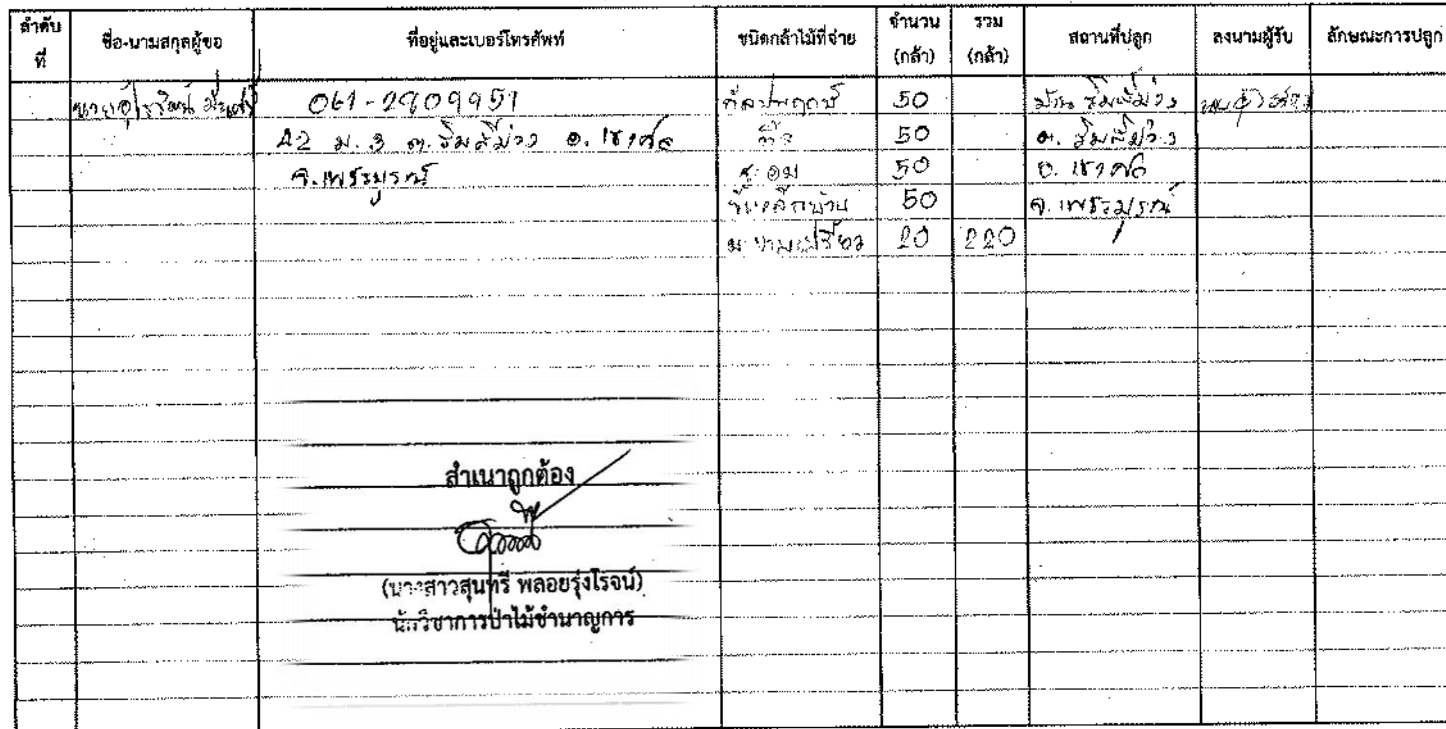 ลำดับที่ ชื่อ-นามสกุลผู้ขอ ที่อยู่และเบอร์โทรศัพท์ ชนิดกล้าไม้ที่จ่าย จำนวน (กล้า) รวม (กล้า) สถานที่ปลูก ลงนามผู้รับ ลักษณะการปลูก
061-2909951 กัลปพฤกษ์ 50 บ้าน ริมสีม่วง
42 ม.3 ต.ริมสีม่วง อ.เขาค้อ 50 ต.ริมสีม่วง
จ.เพชรบูรณ์ 50 อ.เขาค้อ
ขี้เหล็กบ้าน 50 จ.เพชรบูรณ์
มะขามเปรี้ยว 20 220
สำเนาถูกต้อง
(นางสาวสุนทรี พลอยรุ่งโรจน์)
นักวิชาการป่าไม้ชำนาญการ